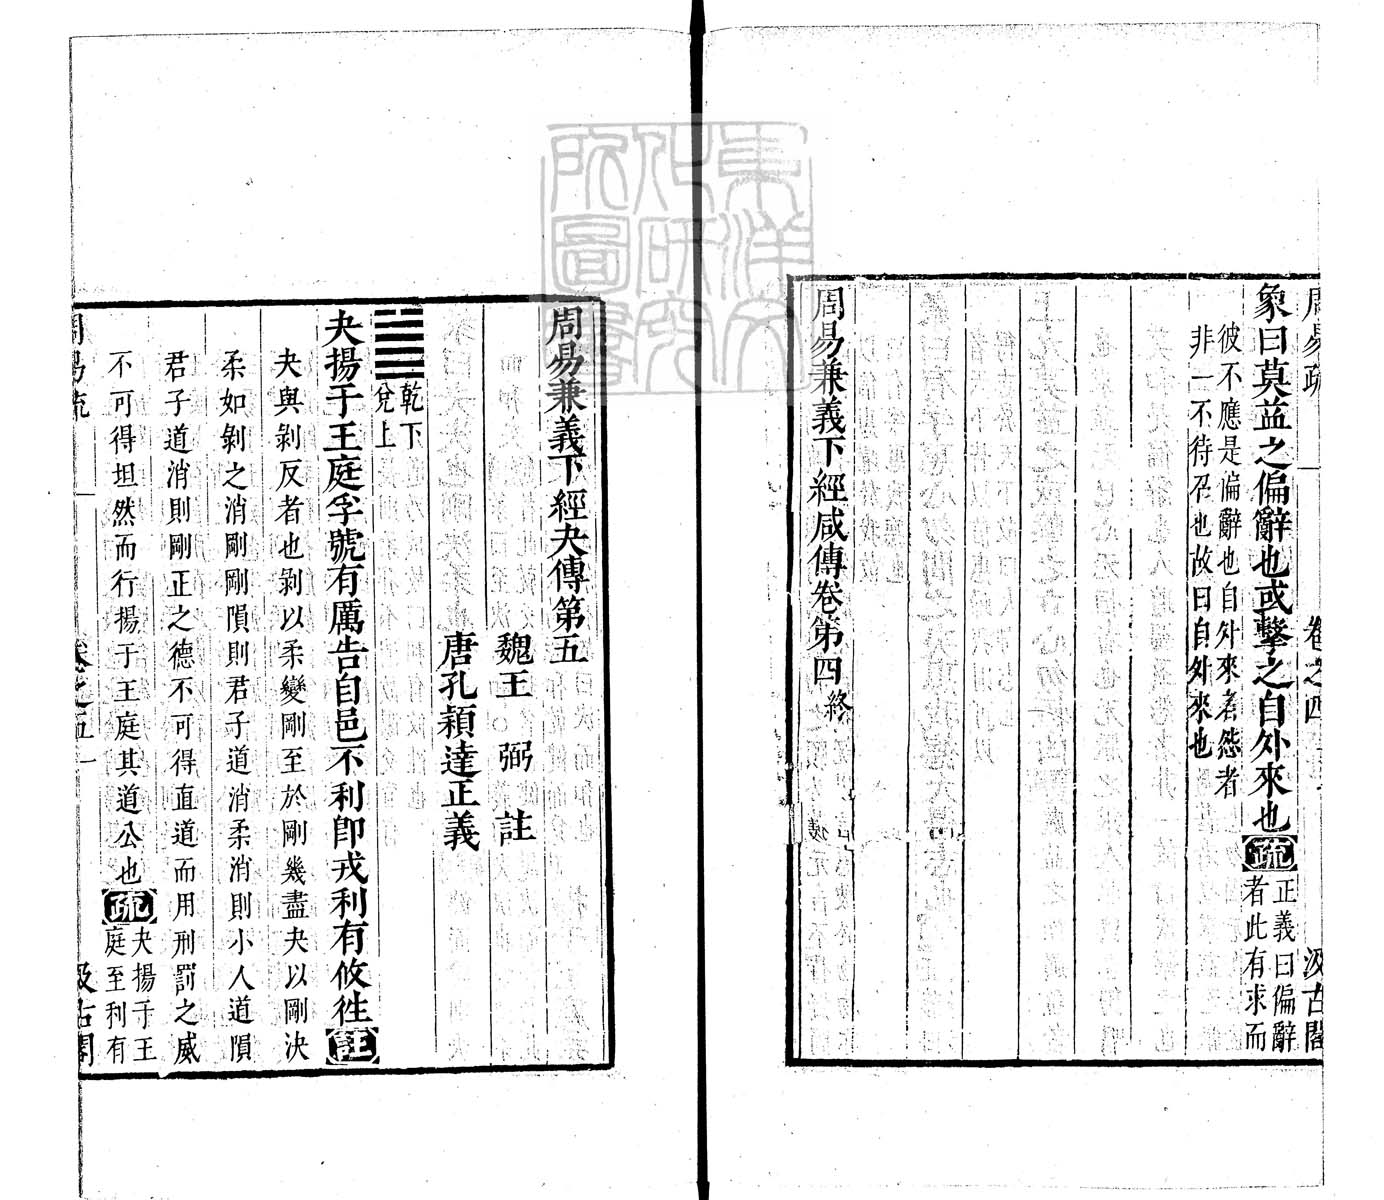 周易疏 卷之四 汲古閣
象曰莫益之偏辭也或擊之自外來也疏正義曰偏辭
者此有求而
彼不應是偏辭也自外來者怨者
非一不待召也故曰自外來也
周易兼義下經咸傳卷第四終
周易兼義下經夬傳第五
魏王弼註
唐孔穎達正義
乾下
兌上
夬揚于王庭孚號有厲告自邑不利卽戎利有攸往註
夬與剝反者也剝以柔變剛至於剛幾盡夬以剛決
柔如剝之消剛剛隕則君子道消柔消則小人道隕
君子道消則剛正之德不可得直道而用刑罰之威
不可得坦然而行揚于王庭其道公也疏夬揚于王
庭至利有
周易疏 卷之五 一 汲古閣
東洋文化研究所圖書